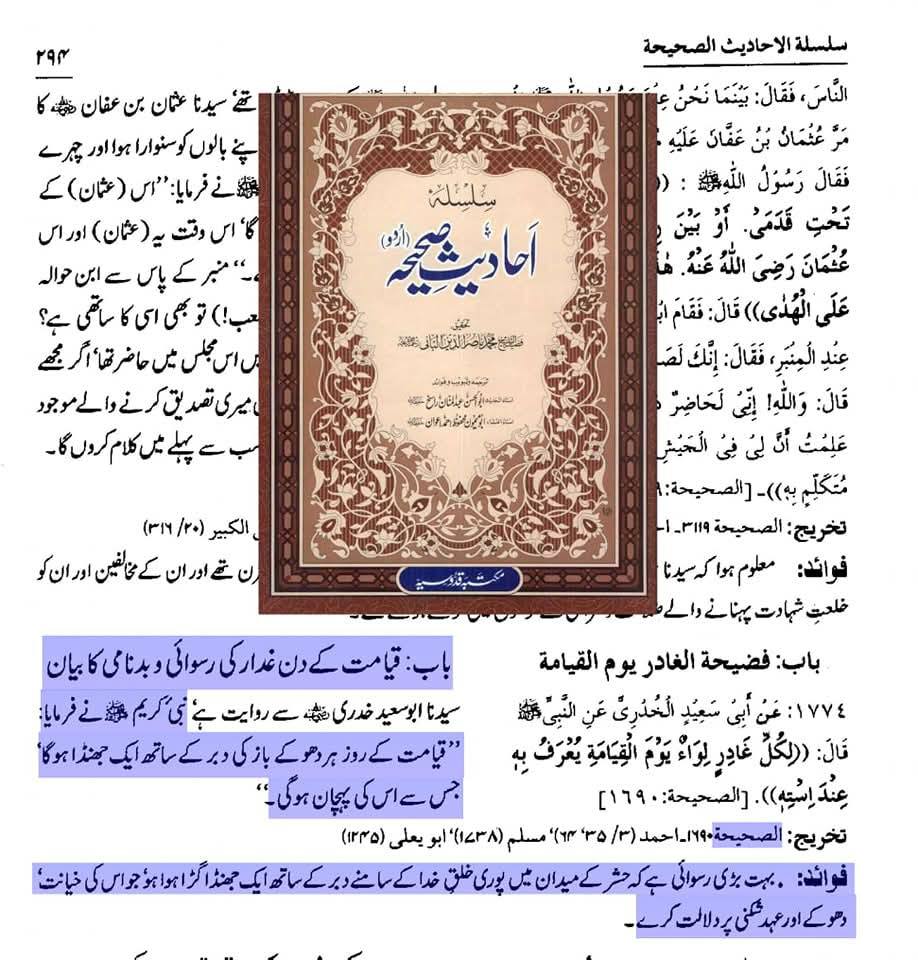 سلسلة الاحاديث الصحيحة
۲۹۴
النَّاسَ، فَقَالَ: بَيْنَمَا نَحْنُ
مَرَّ عُثْمَانُ بْنُ عَفَّانَ عَلَيْهِ
فَقَالَ رَسُوْلُ اللّٰهِ ﷺ : ((
تَحْتِ قَدَمَيَّ. أَوْ بَيْنَ
عُثْمَانَ رَضِيَ اللّٰهُ عَنْهُ.
عَلَى الْهُدٰى)) قَالَ: فَقَامَ
عِنْدِ الْمِنْبَرِ، فَقَالَ: إِنَّكَ
قَالَ: وَاللّٰهِ! إِنِّي لَحَاضِرٌ
عَلِمْتُ أَنَّ لِيْ فِي الْجَيْشِ
مُتَكَلِّمٍ بِهٖ))۔ [الصحيحة:
تھے’ سیدنا عثمان بن عفان ؓ کا
پنے بالوں کو سنوارا ہوا اور چہرے
ﷺ نے فرمایا: ’’اس (عثمان) کے
گا‘ اس وقت یہ (عثمان) اور اس
۔‘‘ منبر کے پاس سے ابن حوالہ
تو بھی اسی کا ساتھی ہے؟
اس مجلس میں حاضر تھا‘ اگر مجھے
میری تصدیق کرنے والے موجود
سب سے پہلے میں کلام کروں گا۔
تخریج: الصحيحة ۳۱۱۹۔
الکبیر (۲۰/ ۳۱۶)
فوائد: معلوم ہوا کہ سیدنا
تھے اور ان کے مخالفین اور ان کو
خلعتِ شہادت پہنانے والے
سلسلۂ
احادیثِ صحیحہ
(اُردُو)
تحقیق
محمد ناصر الدین البانی
ترجمہ و تبویب و فوائد
مکتبہ قدوسیہ
باب: فضيحة الغادر يوم القيامة
۱۷۷٤: عَنْ أَبِيْ سَعِيْدٍ الْخُدْرِيِّ عَنِ النَّبِيِّ ﷺ
قَالَ: ((لِكُلِّ غَادِرٍ لِوَاءٌ يَوْمَ الْقِيَامَةِ يُعْرَفُ بِهٖ
عِنْدَ اسْتِهٖ)). [الصحيحة: ۱٦۹۰]
باب: قیامت کے دن غدار کی رسوائی و بدنامی کا بیان
سیدنا ابوسعید خدری ؓ سے روایت ہے‘ نبیٔ کریم ﷺ نے فرمایا:
’’قیامت کے روز ہر دھوکے باز کی دبر کے ساتھ ایک جھنڈا ہوگا‘
جس سے اس کی پہچان ہوگی۔‘‘
تخریج: الصحيحة ۱۶۹۰۔ احمد (۳/ ۳۵‘ ۶۴)‘ مسلم (۱۷۳۸)‘ ابو یعلی (۱۲۴۵)
فوائد: . بہت بڑی رسوائی ہے کہ حشر کے میدان میں پوری خلقِ خدا کے سامنے دبر کے ساتھ ایک جھنڈا گڑا ہوا ہو‘ جو اس کی خیانت‘
دھوکے اور عہد شکنی پر دلالت کرے۔